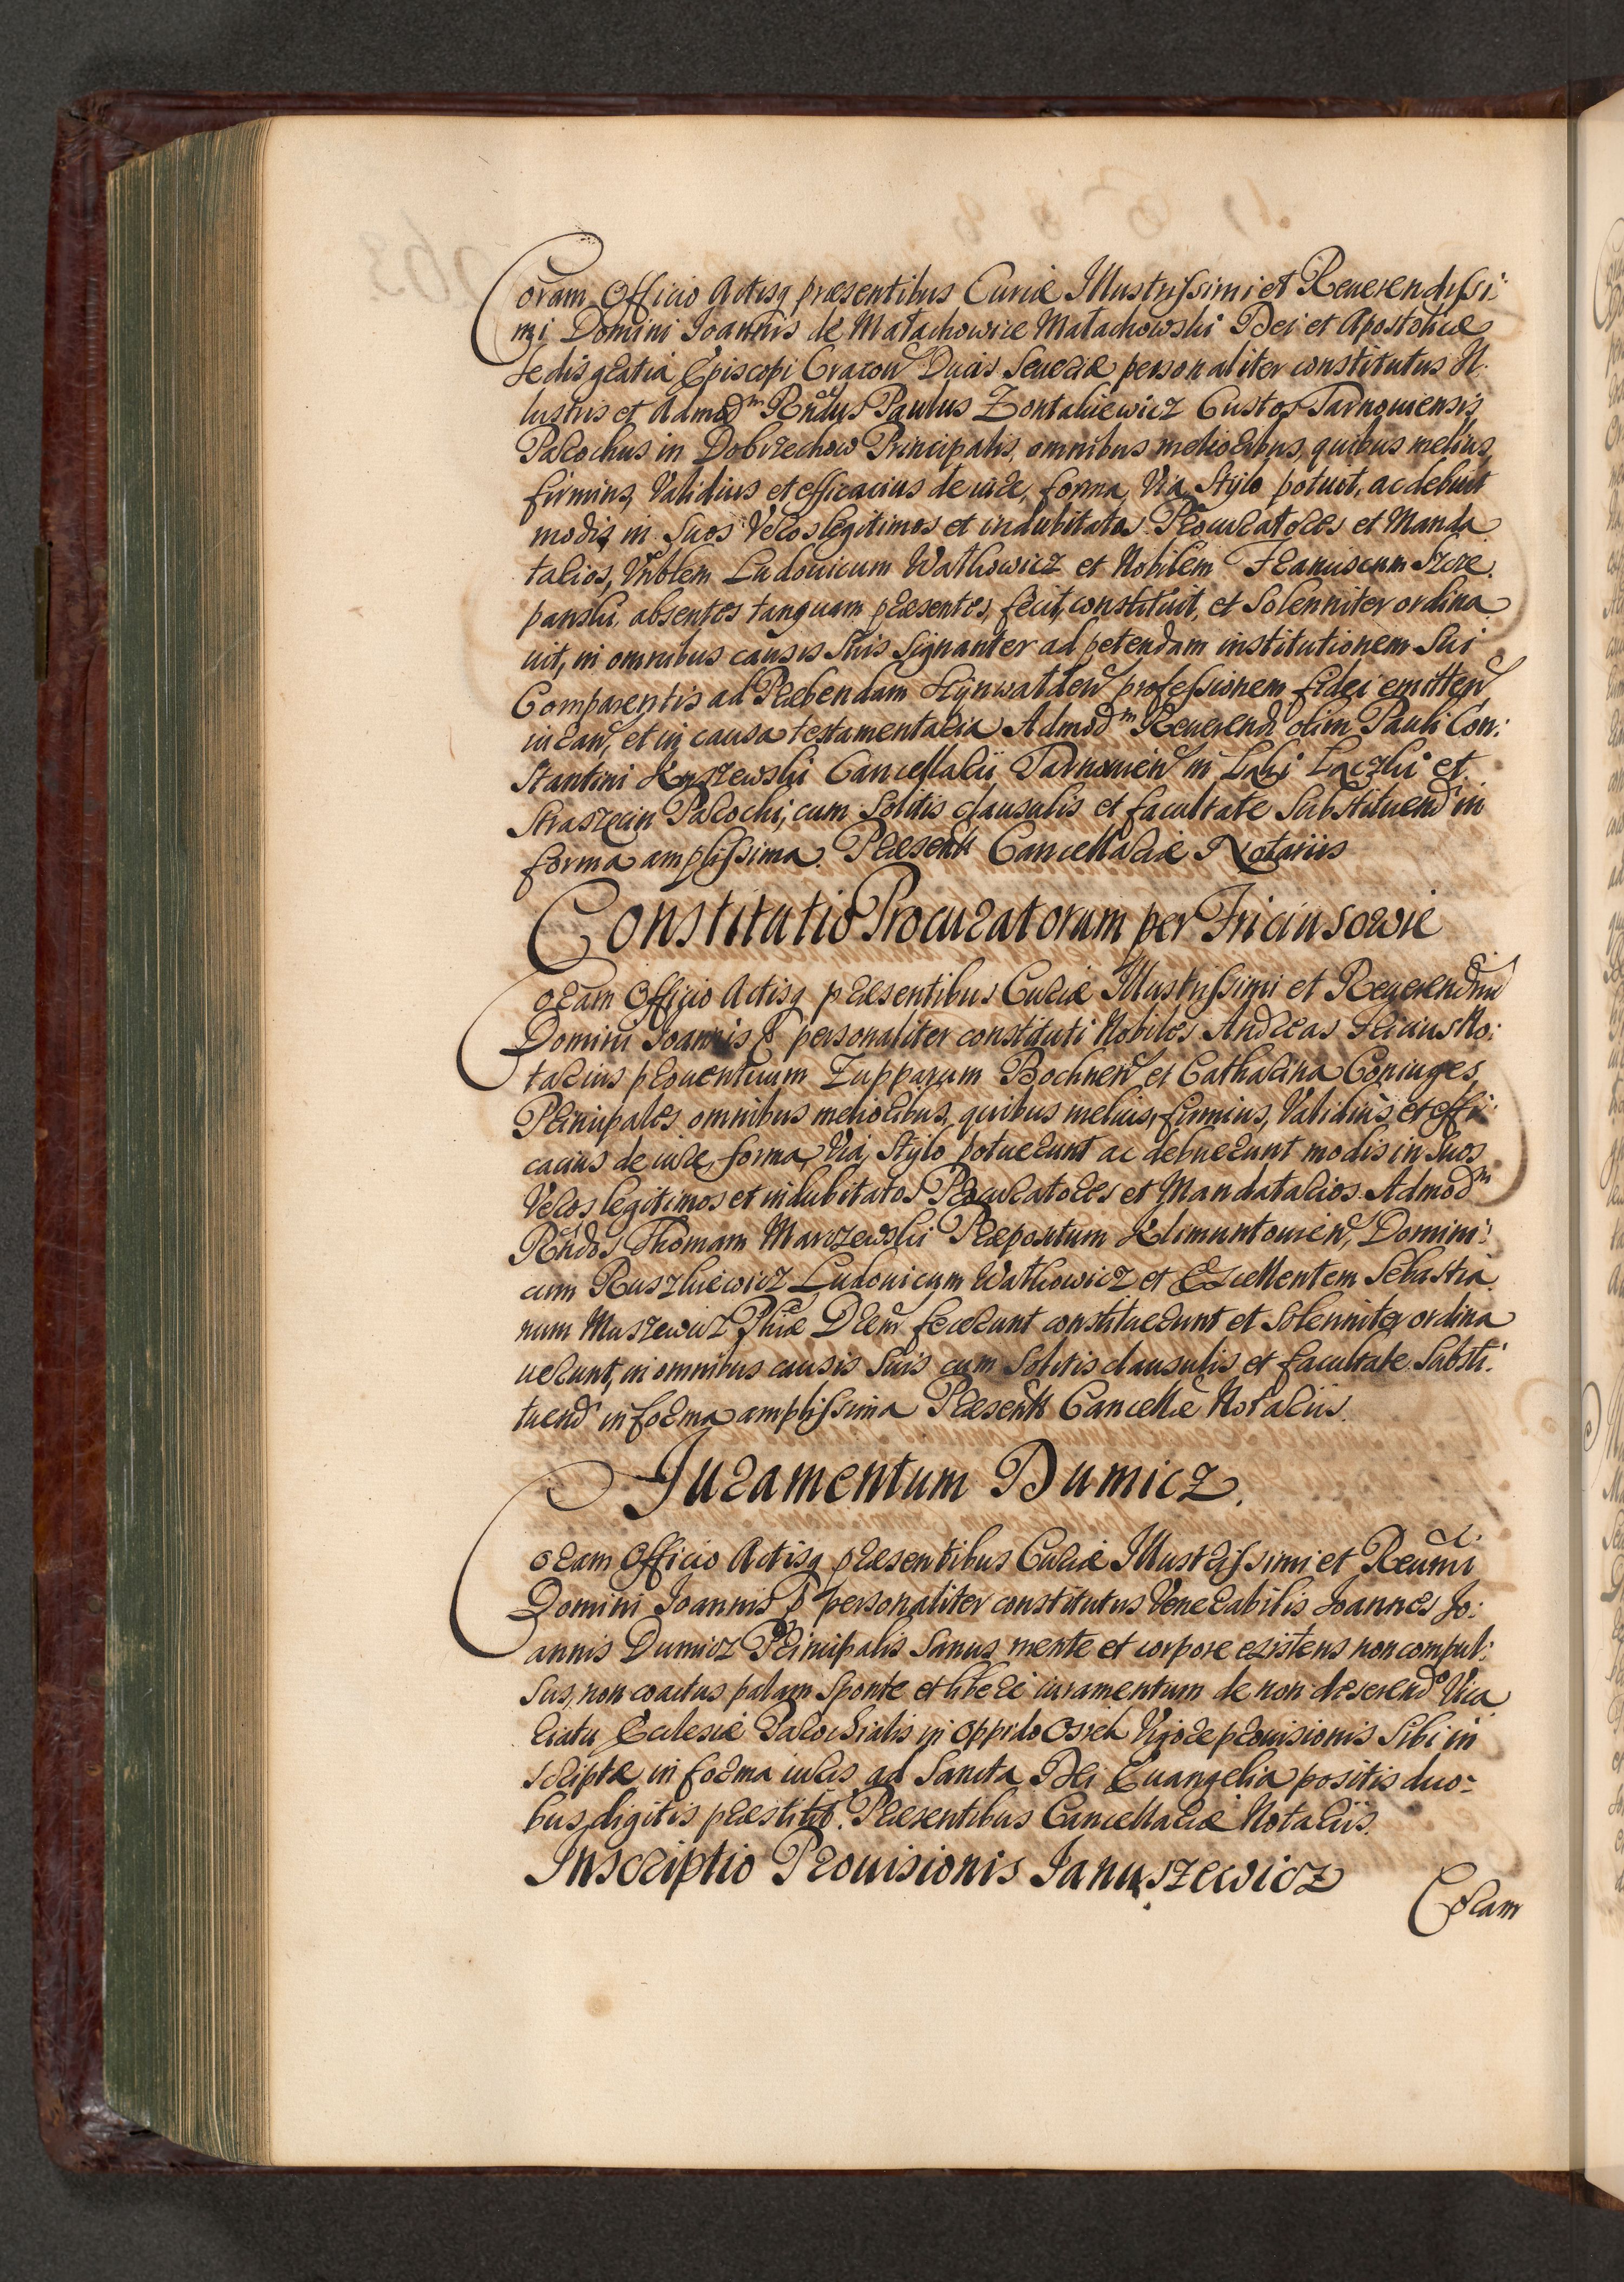 Coram Officio Actisq praesentibus Curiae Illustrissimi et Reuerendissi:
mi Domini Joannis de Małachowice Małachowski Dei et Apostolicae
Sedis gratia Episcopi Cracou Ducis Seueriae personaliter constitutus Il.
lustris et Admodm Rndus Paulus Zontakiewicz Custos Tarnouiensis
Parochus in Dobrzechow Principalis, omnibus melioribus, quibus melius,
firmius, Validius et efficacius de iure, forma, Via, Stylo potuit, ac debuit
modis in Suos Veros legitimos et indubitatos Procuratores et Manda
tarios, Vnblem Ludouicum Wathowicz et Nobilem Franciscum Szcze.
panski, absentes tanquam praesentes, fecit, constituit, et Solenniter ordina
uit, in omnibus causis Suis Signanter ad petendam institutionem Sui
Comparentis ad Praebendam Hynwałden professionem fidei emitten
iuran, et in causa testamentaria Admodm Reuerend olim Pauli Con:
stantini Kyszewski Cancellarii Tarnouien in Łęki Łączki et
Straszęcin Parochi, cum Solitis clausulis et facultate Substituend in
forma amplissima. Praesentt Cancellariae Notariis
Constitutio Procuratorum per Fricius
Coram Officio Actisq praesentibus Curiae Illustrissimi et Reuerendmi
Domini Joannis personaliter constituti Nobiles Andreas Fricius No:
tarius prouentuum Zupparum Bochnen et Catharina Coniuges,
Principales omnibus melioribus, quibus melius, firmius, Validius et effi:
cacius de iure, forma, Via, Stylo potuerunt ac debuerunt modis in Suos
Veros legitimos et indubitatos Procuratores et Mandatarios Admodm
Rndos Thomam Marczewski Praepositum Klimuntouien, Domini:
cum Ruszkiewicz Ludouicum Wathowicz et Excellentem Sebastia
num Muszewicz Phiae Drem fecerunt constituerunt et Solenniter ordina
uerunt, in omnibus causis Suis cum Solitis clausulis et facultate Substi:
tuend in forma amplissima Praesentt Cancellae Notariis.
Juramentum Dumicz.
Coram Officio Actisq praesentibus Curiae Illustrissimi et Reumi
Domini Joannis personaliter constitutus Venerabilis Joannes Jo:
annis Dumicz Principalis Sanus mente et corpore existens non compul:
Sus, non coactus palam Sponte et libere iuramentum de non deserendo Vica
riatu Ecclesiae Parochialis in oppido Osiek Vigore prouisionis Sibi in
scriptae in forma iuris ad Sancta Dei Euangelia positis duo:
bus digitis praestitit. Praesentibus Cancellariae Notariis.
Inscriptio Prouisionis Januszewicz
Coram